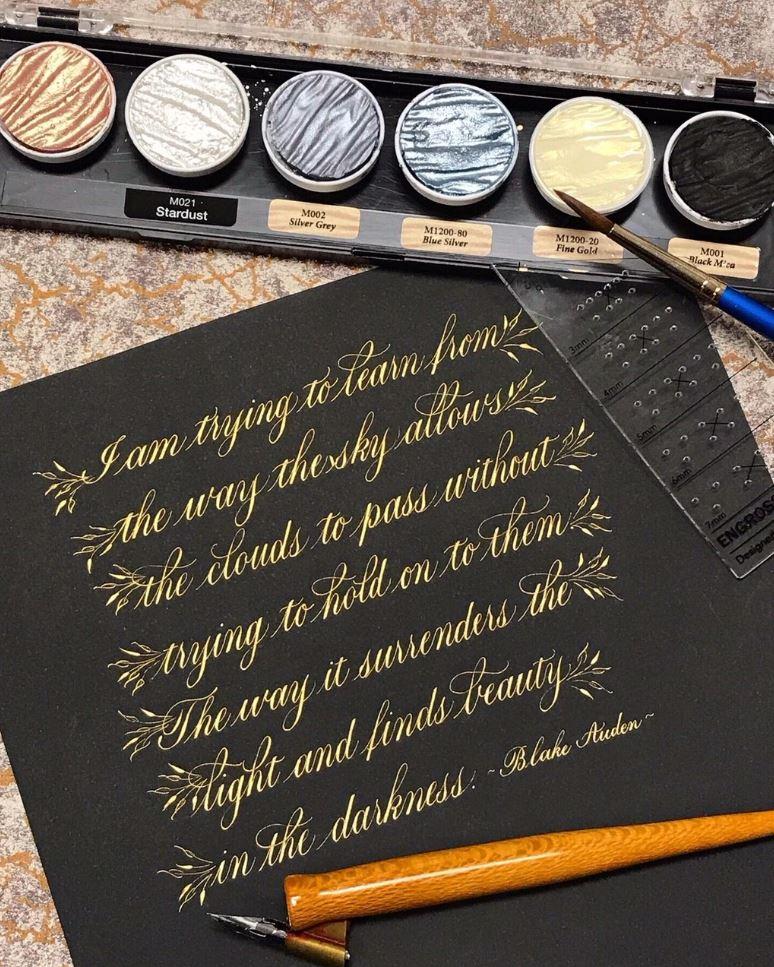 M021
Stardust
M002
Silver Grey
M1200-80
Blue Silver
M1200-20
Fine Gold
M001
Black Mica
3mm
4mm
5mm
6mm
7mm
ENGROS
Designed
I am trying to learn from
the way the sky allows
the clouds to pass without
trying to hold on to them
The way it surrenders the
light and finds beauty
in the darkness. ~Blake Auden~